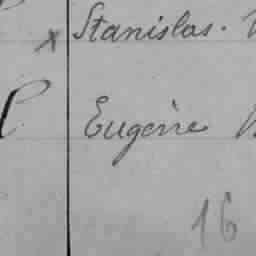 x Stanislas.
Eugène
16